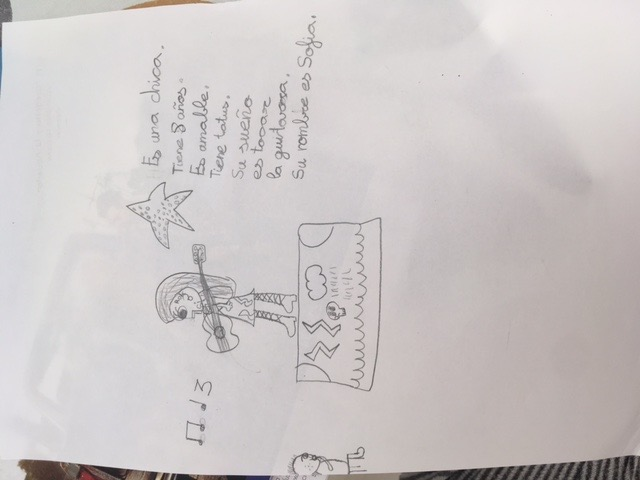 Es una chica.
Tiene 8 años.
Es amable.
Tiene
Su sueño
es tocar
la
Su nombre es Sofia.